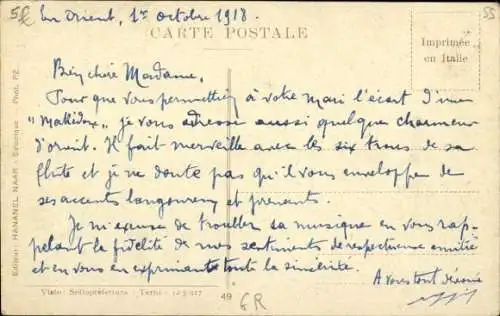 5€
En Orient, 1er octobre 1918.
55
CARTE POSTALE
Imprimée
en Italie
Bien chère Madame,
Pour que vous permettiez à votre mari l'écart d'une
"Makédox", je vous adresse aussi quelque charmeur
d'orient. Il fait merveille avec les six trous de sa
flûte et je ne doute pas qu'il vous enveloppe de
ses accents langoureux et prenants.
Je m'excuse de troubler sa musique en vous rap-
pelant la fidélité de mes sentiments de respectueuse amitié
et en vous en exprimant toute la sincérité.
A vous tout dévoué
Editeur: HANANEL NAAR - Salonique Phot. PZ.
Visto: Sottoprefettura - Terni - 12-5-917
49
GR